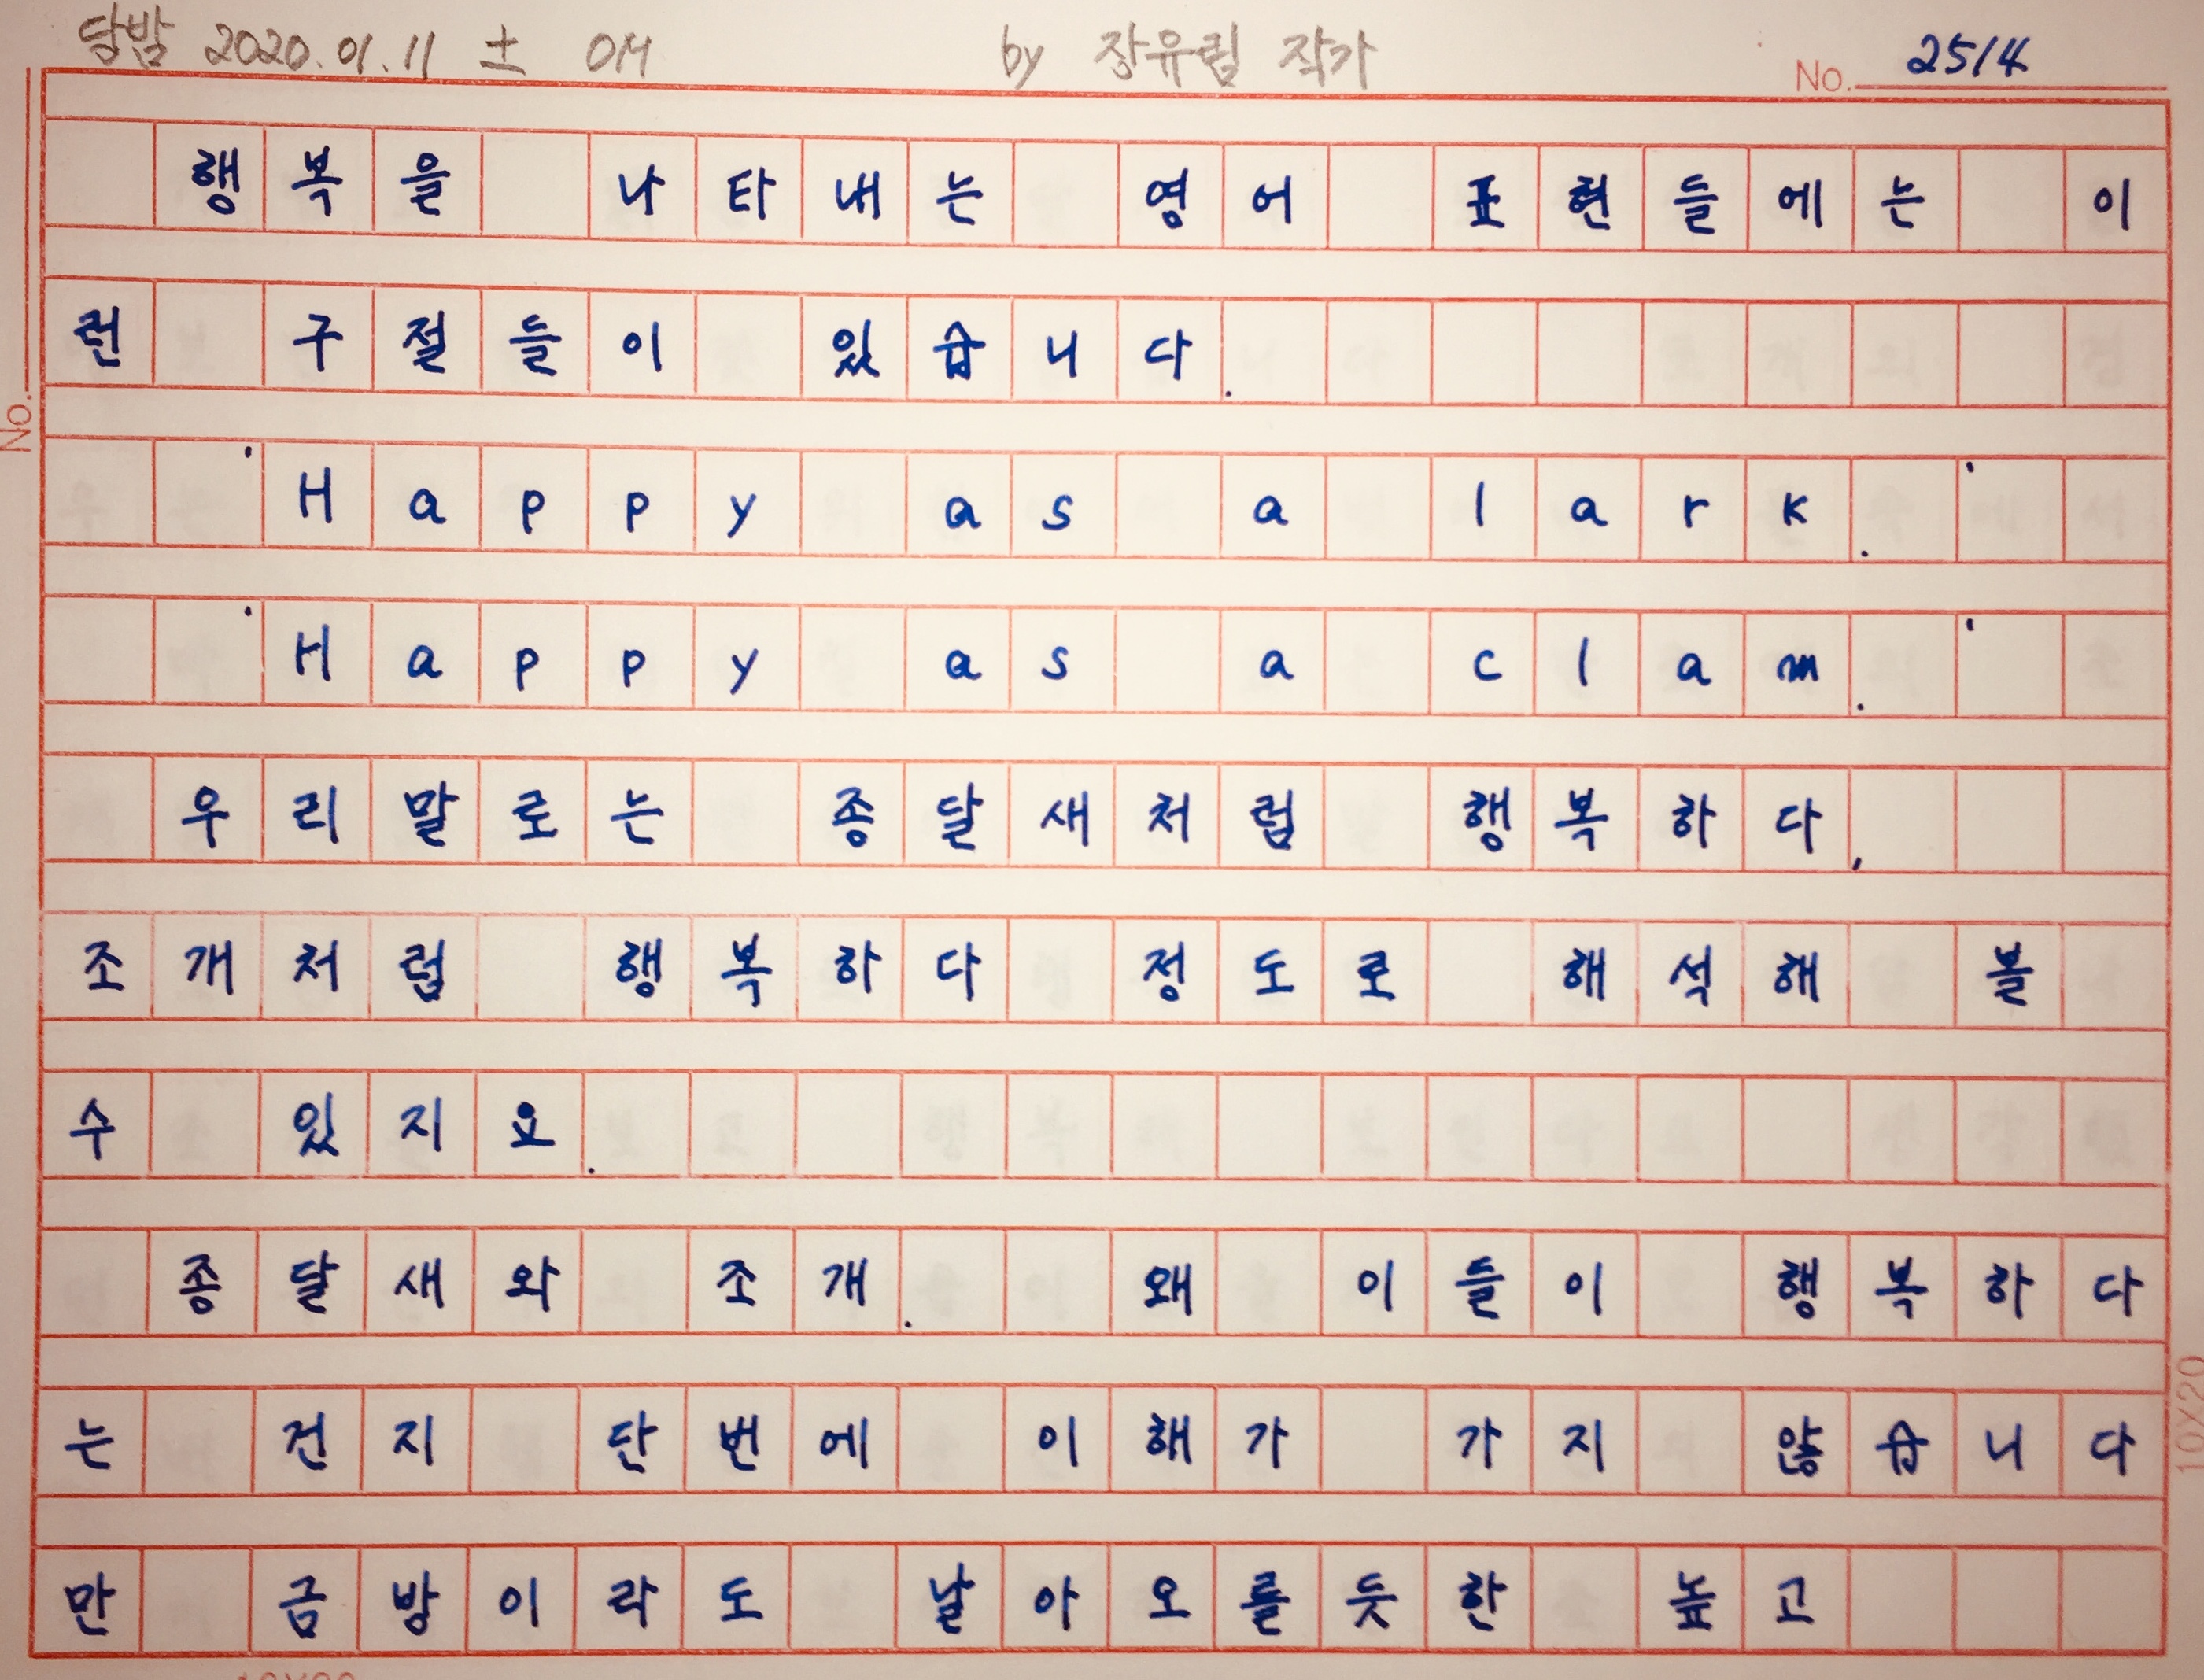 달밤 2020.01.11 土 OM by 장유림 작가 No. 2514
행복을 나타내는 영어 표현들에는 이
런 구절들이 있습니다.
'Happy as a lark.'
'Happy as a clam.'
우리말로는 종달새처럼 행복하다,
조개처럼 행복하다 정도로 해석해 볼
수 있지요.
종달새와 조개. 왜 이들이 행복하다
는 건지 단번에 이해가 가지 않습니다
만 금방이라도 날아오를듯한 높고
No.
10X20